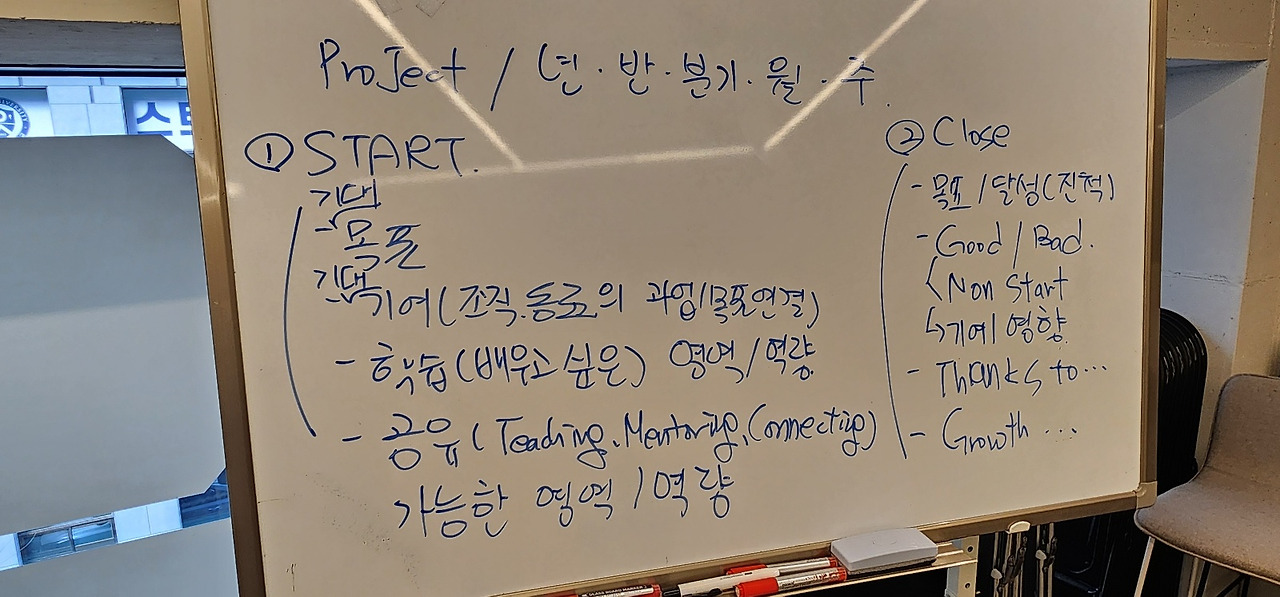 Project / 년 · 반 · 분기 · 월 · 주.
① START.
기대
- 목표
기대
- 기여(조직.동료의 과업/목표연결)
- 학습(배우고 싶은) 영역/역량
- 공유(Teaching, Mentoring, Connecting)
가능한 영역/역량
② Close
- 목표/달성(진척)
- Good / Bad.
Non Start
↳기여/영향
- Thanks to...
- Growth ...